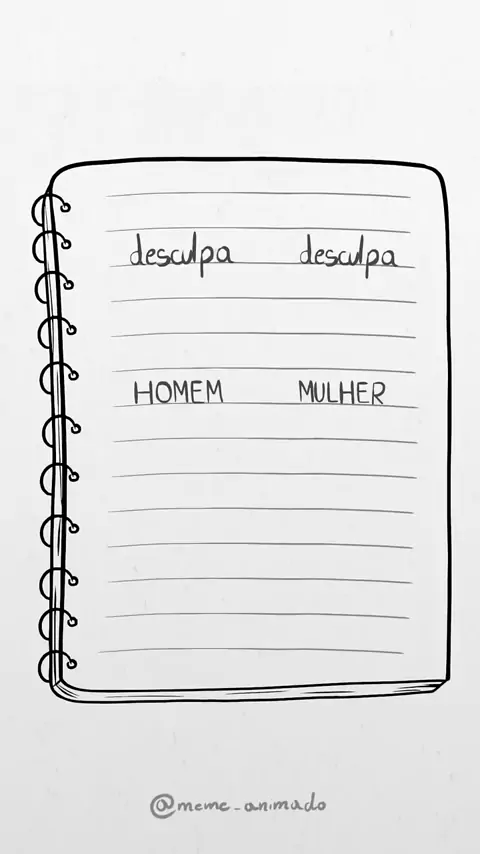 desculpa desculpa
HOMEM MULHER
@meme_animado